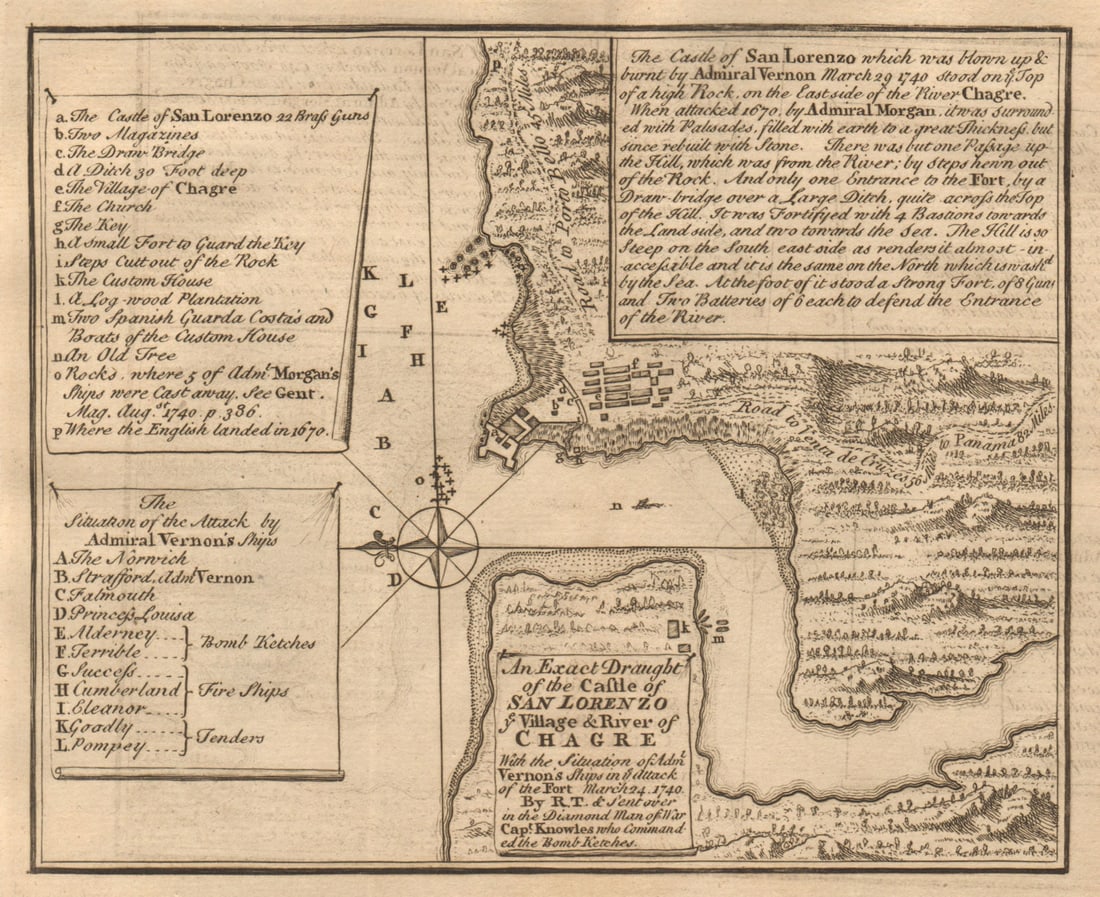 a. The Castle of San Lorenzo 22 Braſs Guns
b. Two Magazines
c. The Draw Bridge
d. A Ditch 30 Foot deep
e. The Village of Chagre
f. The Church
g. The Key
h. A small Fort to Guard the Key
i. Steps Cutt out of the Rock
k. The Custom House
l. A Log-wood Plantation
m. Two Spanish Guarda Costa's and
Boats of the Custom House
n. An Old Tree
o. Rocks, where 5 of Adm.t Morgan's
Ships were Cast away. See Gent.
Mag. Aug.st 1740. p. 386.
p. Where the English landed in 1670.
The
Situation of the Attack by
Admiral Vernon's Ships
A. The Norwich
B. Strafford. Adm.l Vernon
C. Falmouth
D. Princeſs Louisa
E. Alderney
F. Terrible
Bomb Ketches
G. Succeſs
H. Cumberland
I. Eleanor
Fire Ships
K. Goadly
L. Pompey
Tenders
The Castle of San Lorenzo which was blown up &
burnt by Admiral Vernon March 29 1740 stood on y.e Top
of a high Rock, on the East side of the River Chagre.
When attacked 1670, by Admiral Morgan, it was Surround
ed with Palisades, filled with earth to a great Thickneſs, but
since rebuilt with Stone. There was but one Paſsage up
the Hill, which was from the River; by steps hewn out
of the Rock. And only one Entrance to the Fort, by a
Draw-bridge over a Large Ditch, quite acroſs the Top
of the Hill. It was Fortifyed with 4 Bastions towards
the Land side, and two towards the Sea. The Hill is so
Steep on the South east side as renders it almost in-
acceſsible and it is the same on the North which is wash'd
by the Sea. At the foot of it stood a Strong Fort, of 8 Guns
and Two Batteries of 6 each to defend the Entrance
of the River.
p
Road to Porto Bello 45 Miles
K L
G E
F
I H
A
B
C
D
o
f
g h
n
Road to Venta de Cruzes 56
to Panama 82 Miles
k
m
An Exact Draught
of the Caſtle of
SAN LORENZO
y.e Village & River of
CHAGRE
With the Situation of Adm.l
Vernon's Ships in y.e Attack
of the Fort March 24. 1740.
By R.T. & Sent over
in the Diamond Man of War
Cap.t Knowles who Command
ed the Bomb Ketches.